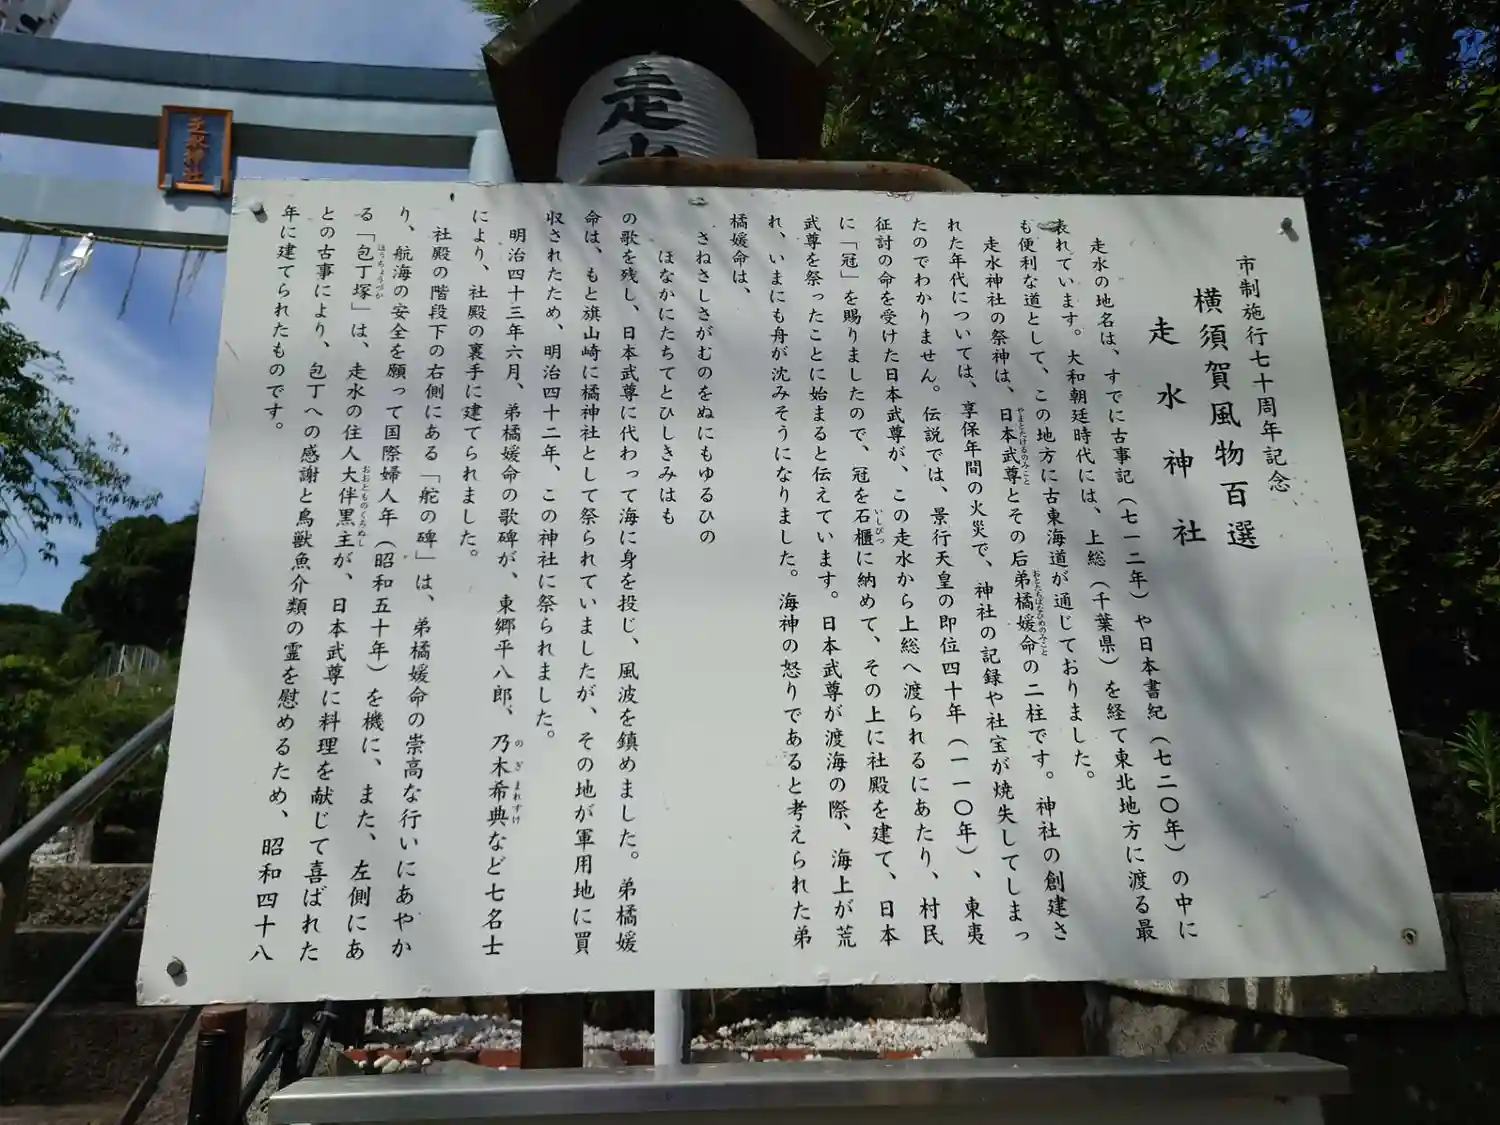 走水
走水神社
市制施行七十周年記念
横須賀風物百選
走水神社
走水の地名は、すでに古事記（七一二年）や日本書紀（七二〇年）の中に
表れています。大和朝廷時代には、上総（千葉県）を経て東北地方に渡る最
も便利な道として、この地方に古東海道が通じておりました。
走水神社の祭神は、日本武尊とその后弟橘媛命の二柱です。神社の創建さ
やまとたけるのみこと
おとたちばなひめのみこと
れた年代については、享保年間の火災で、神社の記録や社宝が焼失してしまっ
たのでわかりません。伝説では、景行天皇の即位四十年（一一〇年）、東夷
征討の命を受けた日本武尊が、この走水から上総へ渡られるにあたり、村民
に「冠」を賜りましたので、冠を石櫃に納めて、その上に社殿を建て、日本
いしびつ
武尊を祭ったことに始まると伝えています。日本武尊が渡海の際、海上が荒
れ、いまにも舟が沈みそうになりました。海神の怒りであると考えられた弟
橘媛命は、
さねさしさがむのをぬにもゆるひの
ほなかにたちてとひしきみはも
の歌を残し、日本武尊に代わって海に身を投じ、風波を鎮めました。弟橘媛
命は、もと旗山崎に橘神社として祭られていましたが、その地が軍用地に買
収されたため、明治四十二年、この神社に祭られました。
明治四十三年六月、弟橘媛命の歌碑が、東郷平八郎、乃木希典など七名士
のぎまれすけ
により、社殿の裏手に建てられました。
社殿の階段下の右側にある「舵の碑」は、弟橘媛命の崇高な行いにあやか
り、航海の安全を願って国際婦人年（昭和五十年）を機に、また、左側にあ
る「包丁塚」は、走水の住人大伴黒主が、日本武尊に料理を献じて喜ばれた
ほうちょうづか
おおとものくろぬし
との古事により、包丁への感謝と鳥獣魚介類の霊を慰めるため、昭和四十八
年に建てられたものです。